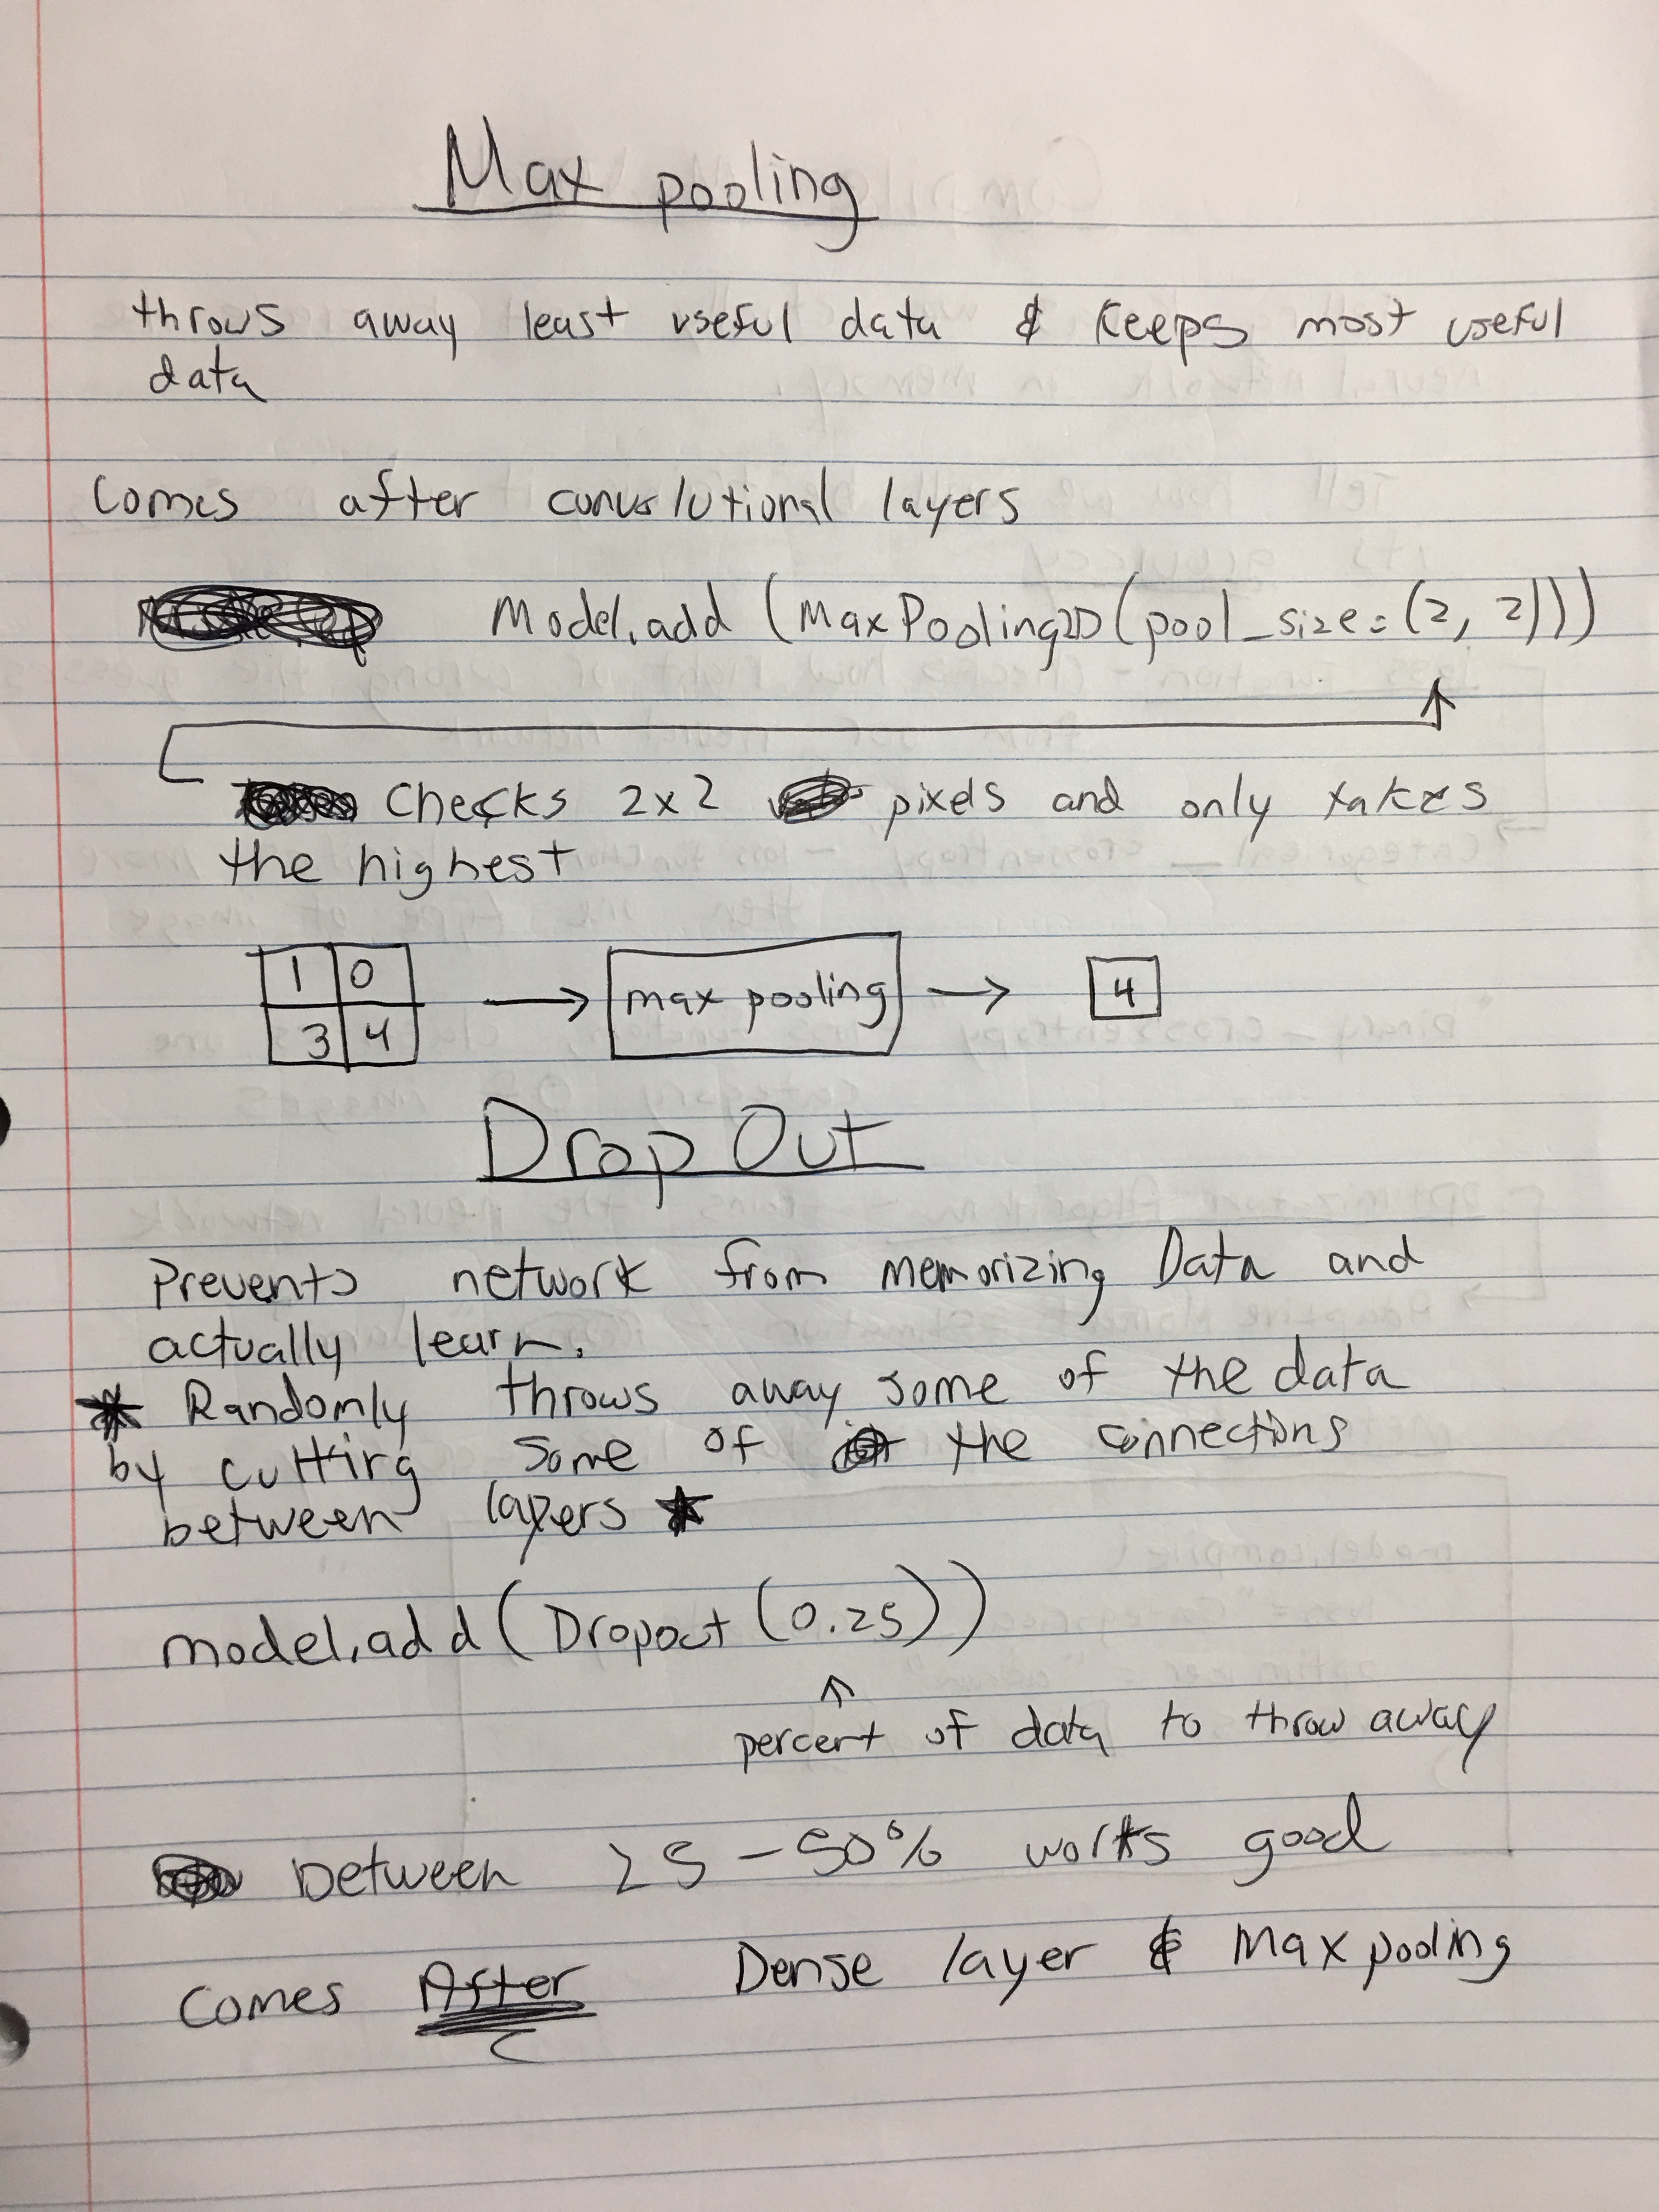 Max pooling
throws away least useful data & Keeps most useful
data
Comes after convolutional layers
Model.add (MaxPooling2D(pool_size=(2, 2)))
Checks 2x2 pixels and only takes
the highest
1 0
3 4
max pooling
4
Drop Out
Prevents network from memorizing Data and
actually learn.
* Randomly throws away some of the data
by cutting some of the connections
between layers *
model.add(Dropout(0.25))
percent of data to throw away
between 25-50% works good
Comes After Dense layer & Max pooling